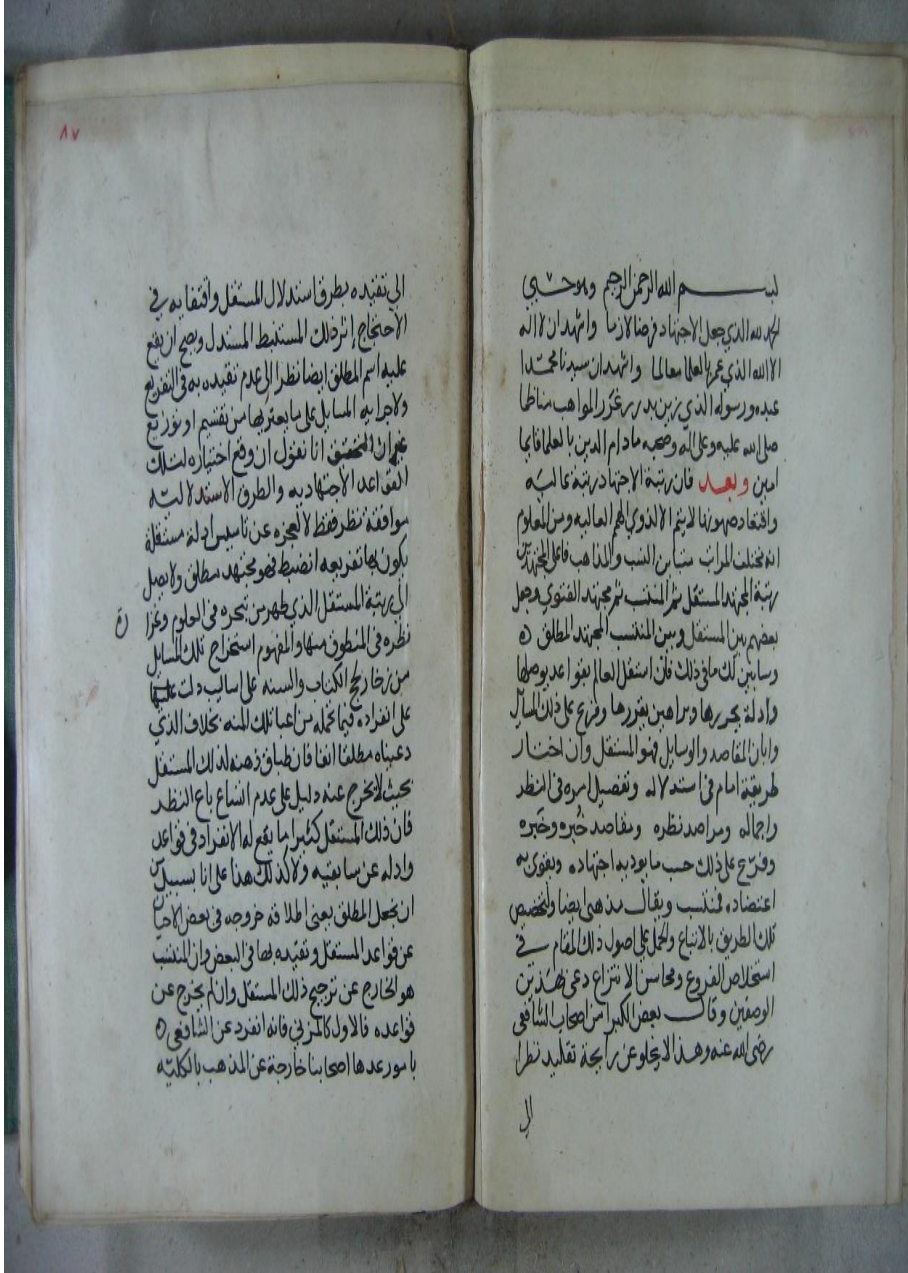 بســـــم الله الرحمن الرحيم وهو حسبي
الحمد لله الذي جعل الاجتهاد فرضا لازما واشهد ان لا اله
الا الله الذي عمر بالعلما معالما واشهد ان سيدنا محمدا
عبده ورسوله الذي زين بدرر غرر المواهب مناظما
صلى الله عليه وعلى اله وصحبه مادام الدين بالعلما قايما
امين وبعد فان رتبة الاجتهاد رتبة عاليه
واقتعاد صهوتها لا يتم الا لذوي الهمم العاليه ومن المعلوم
انه مختلف المراتب متباين النسب والمذاهب فاعلى المجتهدين
رتبة المجتهد المستقل ثم المنتسب ثم مجتهد الفتوي وجعل
بعضهم بين المستقل وبين المنتسب المجتهد المطلق
وسابين لك ما في ذلك فان استقل العالم بقواعد يوصلها
وادلة يحررها وبراهين يقررها وفرع على ذلك المسايل
وابان المقاصد والوسايل فهو المستقل وان اختار
طريقة امام في استدلاله وتفصيل امره في النظر
واجماله ومراصد نظره ومقاصد خُبره وخَبره
وفرّع على ذلك حسب ما يوديه اجتهاده ويقوى به
اعتضاده فمنتسب ويقال مذهبي ايضا ولتخصص
تلك الطريق بالاتباع والحمل على اصول ذلك المقام في
استخلاص الفروع ومحاسن الانتزاع دعي بهذين
الوصفين وقال بعض الكبرا من اصحاب الشافعي
رضي الله عنه وهذا لا يخلو عن رايحة تقليد نظرا
الى
٨٧
الى تقيده بطرق استدلال المستقل واقتفايه في
الاحتجاج إثر ذلك المستنبط المستدل ويصح ان يقع
عليه اسم المطلق ايضا نظرا الى عدم تقيده به في التفريع
ولاجرايه المسايل على ما يعتريها من تقسيم او توزيع
غير ان المحقق انا نقول ان وقع اختياره لتلك
القواعد الاجتهاديه والطرق الاستدلاليه
موافقة نظر فقط لا لعجزه عن تاسيس ادلة مستقلة
يكون بها تفريعه انضبط فهو مجتهد مطلق ولا يصل
الى رتبة المستقل الذي ظهر من تبحره في العلوم وغزا
رة
نظره في المنطوق منها والمفهوم استخراج تلك المسايل
من الكتاب والسنه على اساليب دلت
على انفراده فيما تحمله من اعبا تلك المنه بخلاف الذي
دعيناه مطلقا انفا فان طباق ذهنه لذلك المستقل
بحيث لا يخرج عنه دليل على عدم اتساع باع النظر
فان ذلك المستقل كثيرا ما يقع له الانفراد في قواعد
وادله عن سابقيه ولا كذلك هذا على انا بسبيل من
ان نجعل المطلق بمعنى اطلاقه خروجه في بعض الاحيان
عن قواعد المستقل وتقيده بها في البعض وان المنتسب
هو الخارج عن ترجيح ذلك المستقل وان لم يخرج عن
قواعده فالاول كالمزني فانه انفرد عن الشافعي
بامور عدها اصحابنا خارجة عن المذهب بالكليه